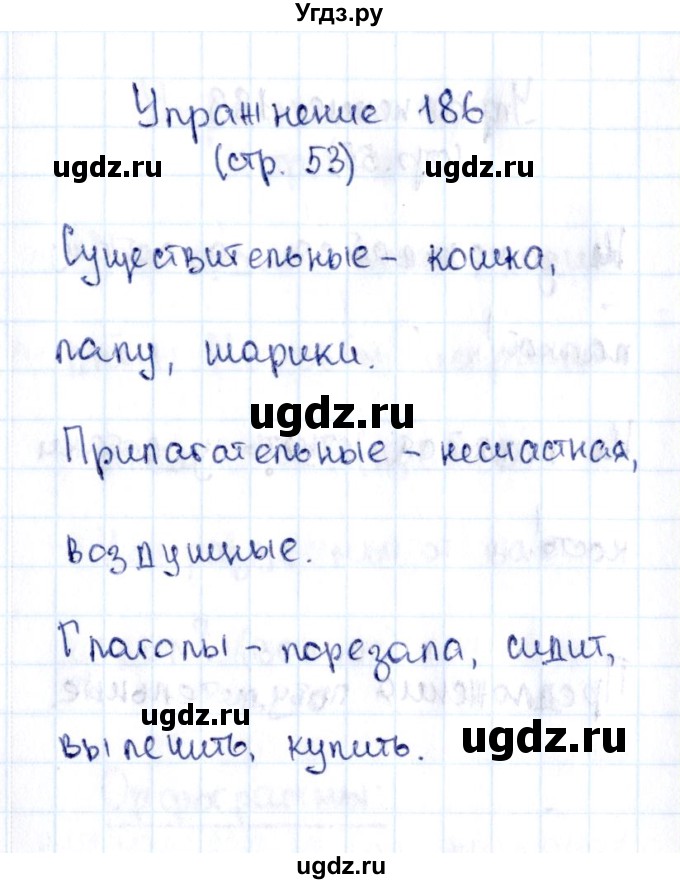 Угдз.ру
Упражнение 186
ugdz.ru (стр. 53) ugdz.ru
Существительные - кошка,
лапу, шарики.
ugdz.ru
Прилагательные - несчастная,
воздушные.
Глаголы - порезала, сидит,
ugdz.ru
вылечить, купить. ugdz.ru
ugdz.ru